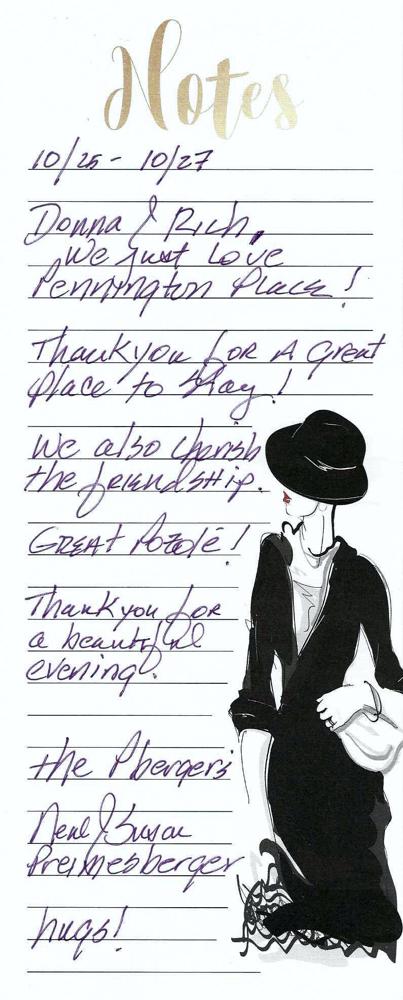 Notes
10/25 - 10/27
Donna & Rich,
We just Love
Pennington Place!
Thank you for A Great
place to stay!
We also cherish
the friendship.
Great Pozolé!
Thank you for
a beautiful
evening.
the Pberger's
Neal & Susan
Preimesberger
hugs!